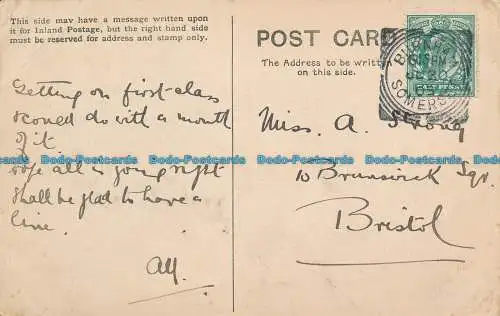 This side may have a message written upon
it for Inland Postage, but the right hand side
must be reserved for address and stamp only.
POST CARD
The Address to be written
on this side.
Getting on first class
scould do with a month
of it
all is going right
shall be glad to have a
line.
Miss. A. Strong
10 Brunswick Sqr.
Bristol
SOMERSET
HALF PENNY
Bodo-Postcards Bodo-Postcards Bodo-Postcards Bodo-Postcards
Bodo-Postcards Bodo-Postcards Bodo-Postcards Bodo-Postcards